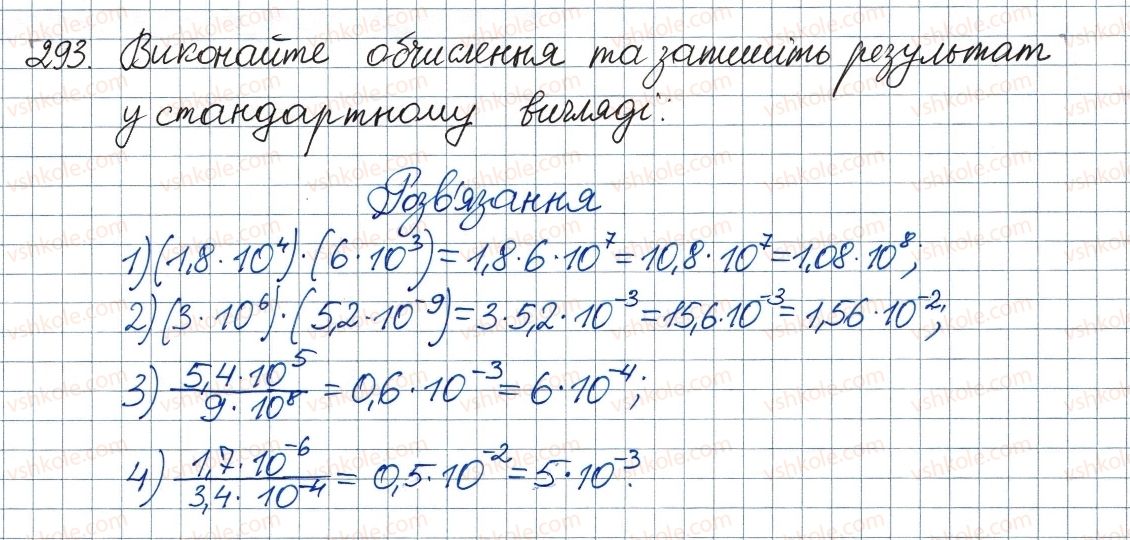 293. Виконайте обчислення та запишіть результат
у стандартному вигляді:
Розв'язання
1) (1,8 · 10⁴) · (6 · 10³) = 1,8 · 6 · 10⁷ = 10,8 · 10⁷ = 1,08 · 10⁸;
2) (3 · 10⁶) · (5,2 · 10⁻⁹) = 3 · 5,2 · 10⁻³ = 15,6 · 10⁻³ = 1,56 · 10⁻²;
3) (5,4 · 10⁵)/(9 · 10⁸) = 0,6 · 10⁻³ = 6 · 10⁻⁴;
4) (1,7 · 10⁻⁶)/(3,4 · 10⁻⁴) = 0,5 · 10⁻² = 5 · 10⁻³.